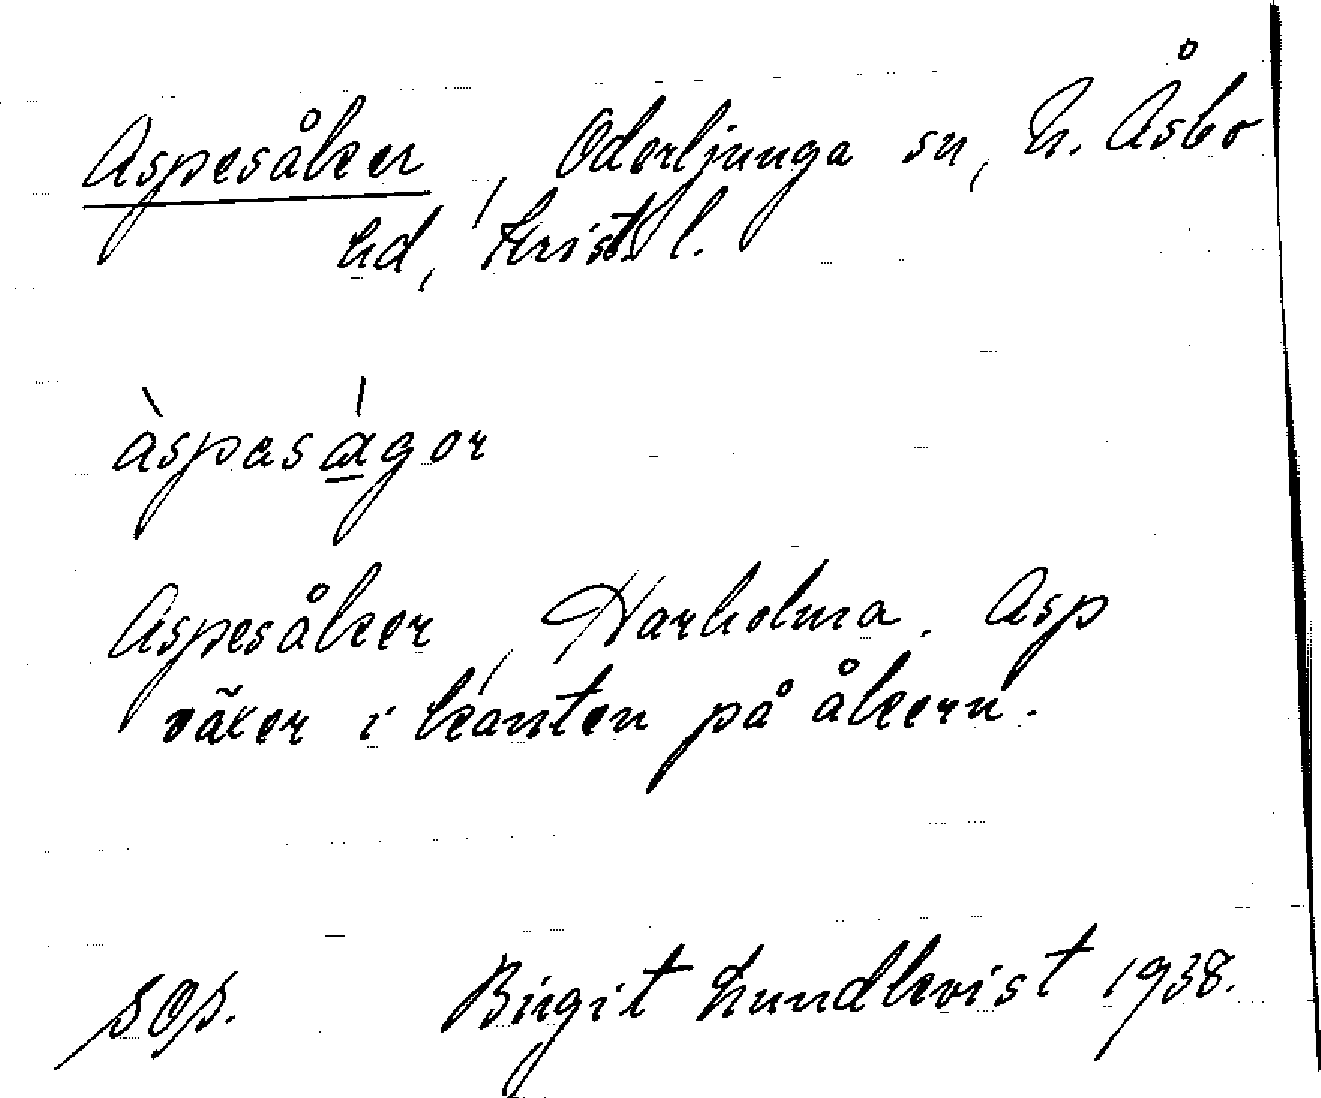 Aspesåker, Oderljunga sn, N. Åsbo
hd, Krist. l.
àspasàgor
Aspesåker, Harholma. Asp
växer i kanten på åkern.
Birgit Lundkvist 1938.